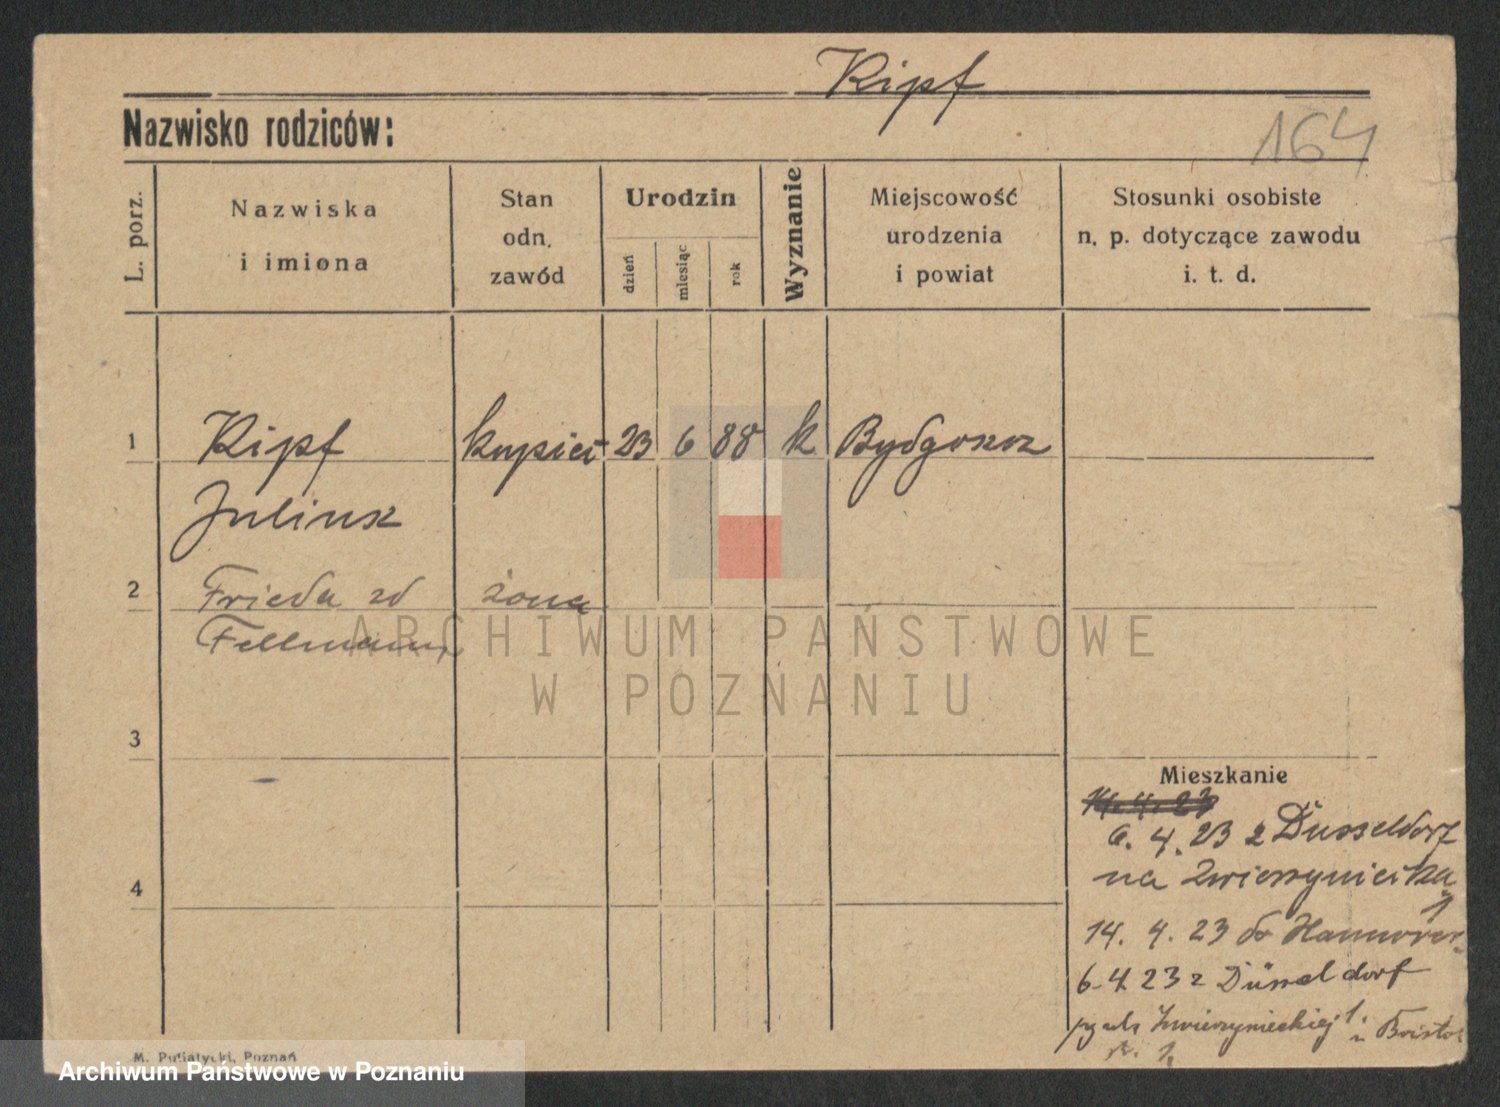 Kipf
Nazwisko rodziców:
164
L. porz.
Nazwiska
i imiona
Stan
odn.
zawód
Urodzin
dzień
miesiąc
rok
Wyznanie
Miejscowość
urodzenia
i powiat
Stosunki osobiste
n. p. dotyczące zawodu
i. t. d.
1 Kipf kupiec 23 6 88 k Bydgoszcz
Juliusz
2 Frieda zd żona
Fellmann
ARCHIWUM PAŃSTWOWE
W POZNANIU
3
Mieszkanie
14.4.23
6. 4. 23 z Düsseldorf
na Zwierzyniecka
1
4
14. 4. 23 do Hannover
6.4.23 z Düsseldorf
Zwierzynieckiej 1.
M. Putiatycki, Poznań
Archiwum Państwowe w Poznaniu